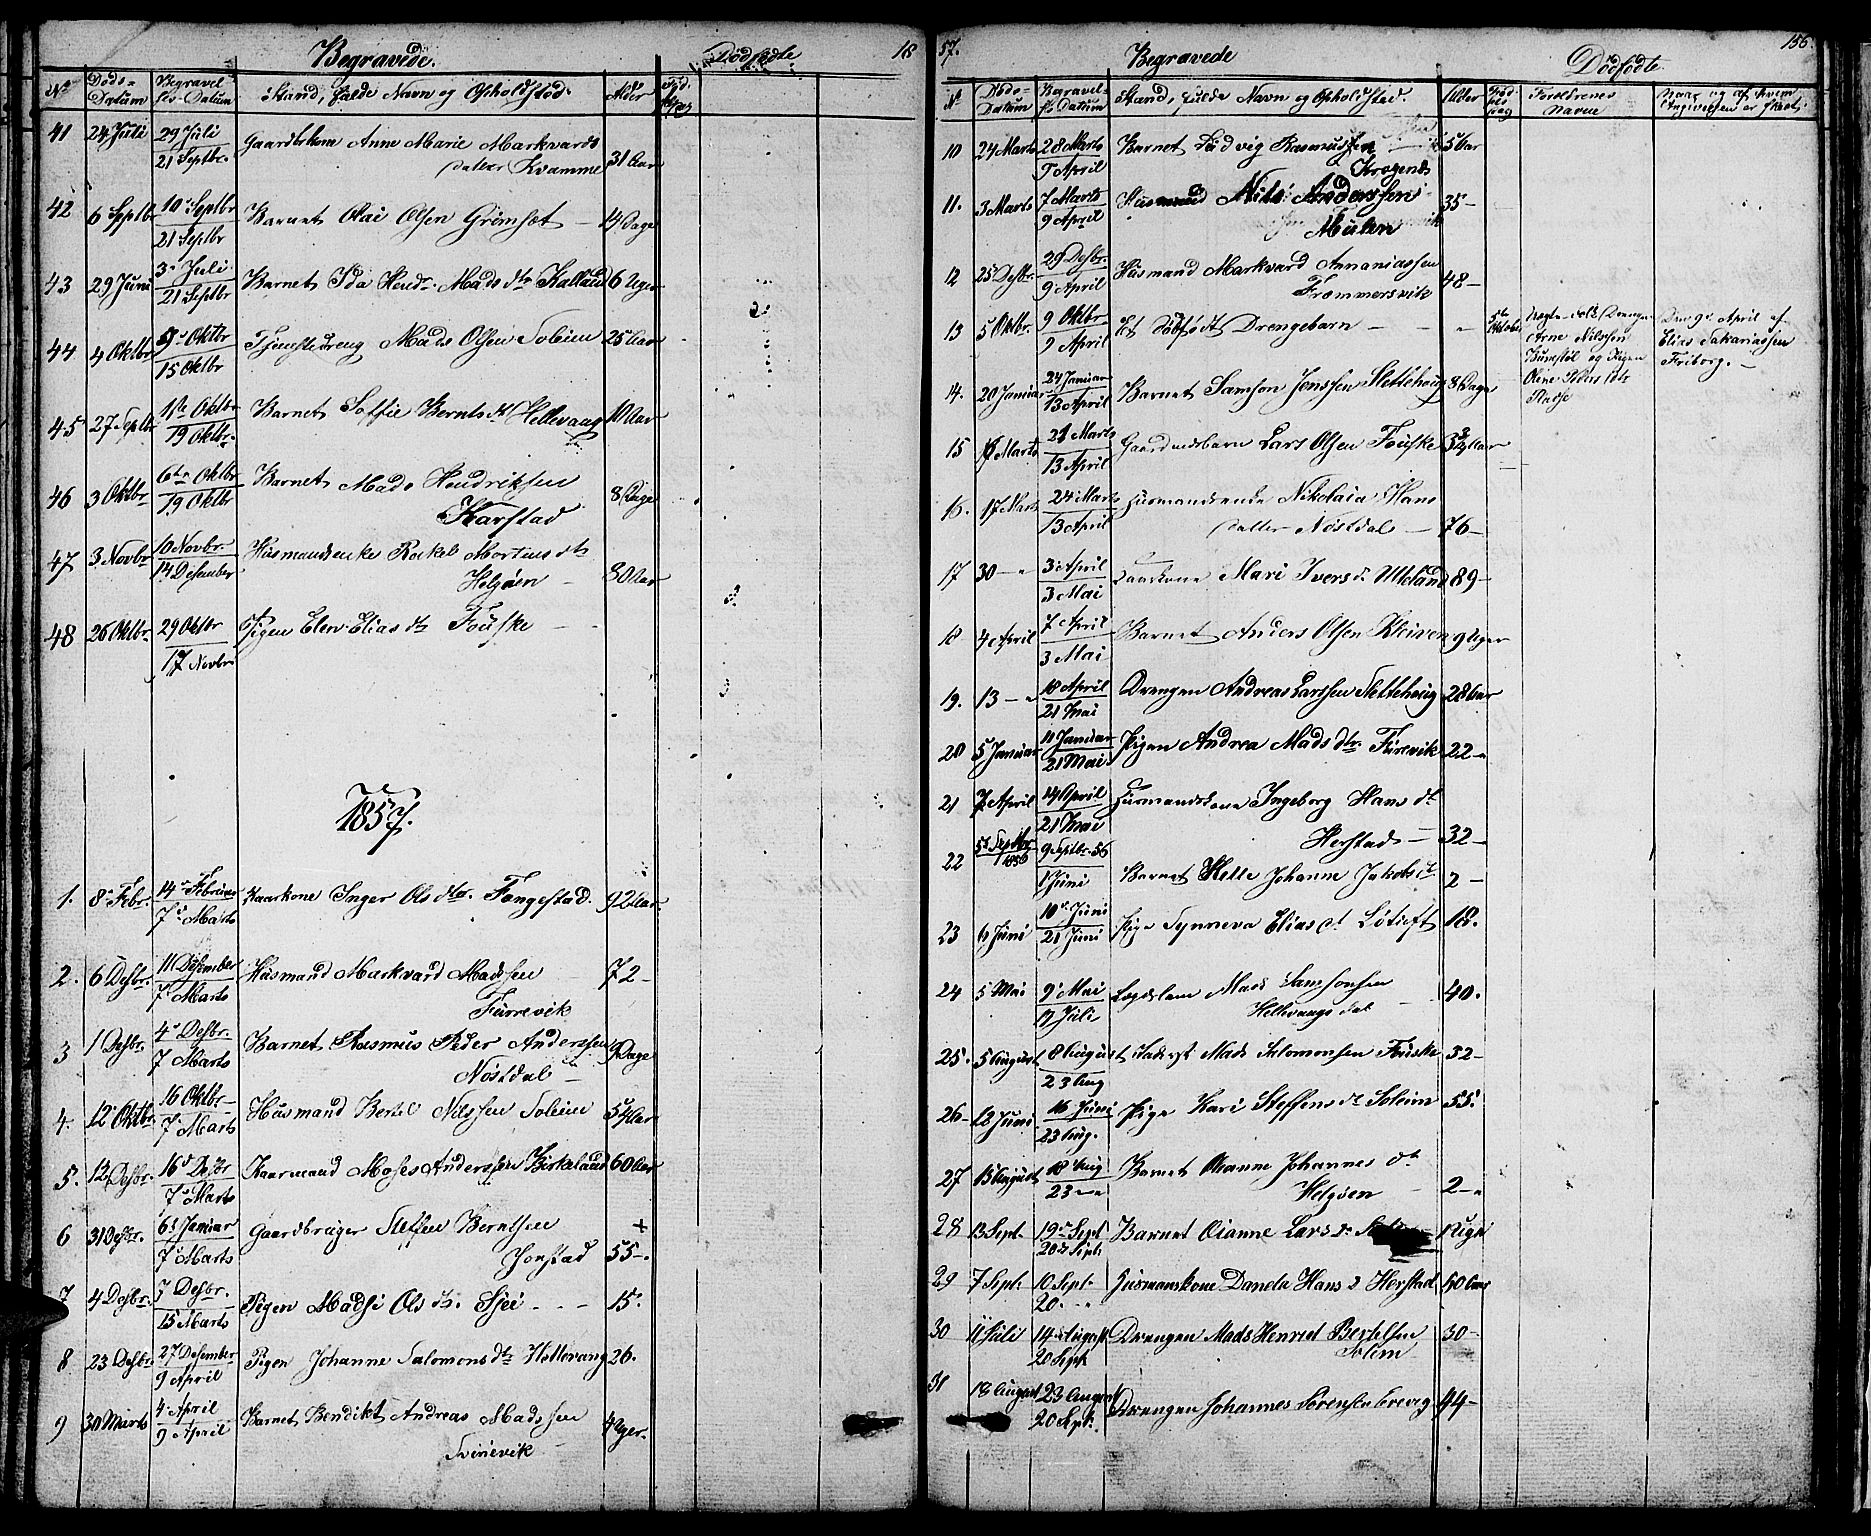 Begravede. Dödfödte 18
No Döds-Datum Begravelses-Datum Stand, fulde Navn og Opholdsted. Alder
41 24 Juli 29 Juli 21 Septbr. Gaardbrkone Anne Marie Markvards
datter Kvamme 31 Aar
42 6 Septbr 10 Septbr 21 Septbr Barnet Olai Olsen Grimset 4 Dage
43 29 Juni 3 Juli 21 Septbr Barnet Ida Hendr. Mads dtr Kalland 6 Uger
44 4 Oktbr 9 Oktbr 15 Oktbr Tjenestedreng Mads Olsen Soleim 25 Aar
45 27 Septbr 1ste Oktbr 19 Oktbr. Barnet Soffie Bernts dt Hellevaag 10 Aar
46 3 Oktbr 6te Oktbr 19 Oktbr Barnet Mads Hendriksen
Karstad 8 Dage
47 3 Novbr 10 Novbr 14 Desember Husmandsenke Rakel Mortens dtr
Helgöen 80 Aar
48 26 Oktbr. 29 Oktbr 17 Novbr Pigen Elen Elias dtr Fouske
1857.
1. 8 Febr. 14 Februar 7 Marts Kaarkone Inger Ols dtr. Fangestad. 92 Aar
2. 6 Desbr. 11 Desember 7 Marts Husmand Markvard Madssen
Furrevik 72
3 1 Desbr. 4 Desbr. 7 Marts Barnet Rasmus Peder Anderssen
Nöstdal 9 Dage
4. 12 Oktbr. 16 Oktbr 7 Marts Husmand Bertel Nilssen Soleim 54 Aar
5. 12 Desbr. 16 Desbr 7 Marts Kaarmand Moses Anderssen Birkeland 60 Aar
6 31 Desbr. 6 Januar 7 Marts Gaardbruger Steffen Berntsen
Jonstad 55
7 4 Desbr. 7 Desbr. 15 Marts Pigen Madsi Ols dtr. Sjei 15.
8 23 Desbr 27 Desember 9 April Pigen Johanne Salomons dtr Hellevang 26.
9 30 Marts 4 April 9 April Barnet Bendikt Andreas Madssen
Svinevik 4 Uger
57. Begravede Dödfödte. 156.
No Döds-Datum Begravelses-Datum Stand, fulde Navn og Opholdsted. Alder Föd sels dag Foreldrenes Navne Naar og af hvem Angivelsen er skeet.
10 24 Marts 28 Marts 9 April Barnet Ludvig Rasmussen
Krogend 5 Aar
11. 3 Marts 7 Marts 9 April Husmand Nils Anderssen
Mulen 35
12 25 Desbr. 29 Desbr. 9 April Husmand Markvard Annaniassen
Frommersvik 48
13 5 Oktbr. 9 Oktbr 9 April Et dödfödt Drengebarn 5te Oktober
Arne Nilssen
og Pigen
Oline Peders dtr
Den 9de April af
Elias Sakariassen
Friborg.
14. 20 Januar 24 Januar 13 April Barnet Samson Jenssen Slettehaug 8 Dage
15 Marts 21 Marts 13 April Gaardmdsbarn Lars Olsen Fouske 3 3/4 Aar
16. 17 Marts 24 Marts 13 April Husmandsenke Nikolaia Hans
datter Nöstdal 76
17 30 3 April 3 Mai Kaarkone Mari Ivers dr Utteland 89
18 4 April 7 April 3 Mai Barnet Anders Olsen Kleiven 9 Uger
19. 13 18 April 21 Mai Drengen Andreas Larssen Slettehoug 28 Aar
20 5 Januar 11 Januar 21 Mai Pigen Andrea Mads dtr. Furevik 22
21 7 April 14 April 21 Mai Husmandskone Ingeborg Hans dt
Herstad 32
22 5 Septbr 1856 9 Septbr. 56 1 Juni Barnet Helle Johanne Jakobs dt 2
23 6 Juni 10 Juni 21 Juni Pige Synneva Elias dt Lötuft 18.
24 5 Mai 9 Mai 19 Juli Lægdslem Mads Samsonsen
Hellevangsdal 40.
25. 5 August 8 August 23 Aug Mads Salomonsen Fuske 32
26 12 Juni 16 Juni 23 Aug. Pige Kari Steffens dr Soleim 55.
27 15 August 18 Aug 23 Barnet Oleanne Johannes dt
Helgöen 2
28 13 Sept. 19 Sept 20de Sept. Barnet Oianne Lars dr
29 7 Sept. 10 Sept. 20. Husmanskone Danela Hans d Herstad 50 Aar
30 11 Juli 14 August 20 Sept Drengen Mads Henrek Bertelsen
Solem 30
31 18 August 23 August 20 Sept. Drengen Johannes Sörensen 44